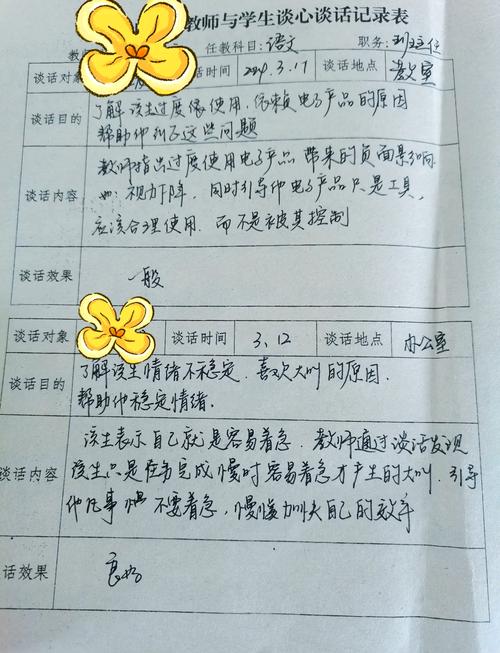 教师与学生谈心谈话记录表
教 任教科目:语文 职务:班主任
谈话对象 话时间 2024.3.17 谈话地点 教室
谈话目的 了解该生过度使用、依赖电子产品的原因
帮助他纠正这些问题
教师指出过度使用电子产品带来的负面影响
谈话内容 如:视力下降,同时引导他电子产品只是工具,
应该合理使用,而不是被其控制
谈话效果 一般
谈话对象 谈话时间 3.12 谈话地点 办公室
谈话目的 了解该生情绪不稳定,喜欢大叫的原因.
帮助他稳定情绪.
该生表示自己就是容易着急.教师通过谈话发现
谈话内容 该生只是在完成慢时容易着急才产生的大叫.引导
他凡事不要着急,慢慢加快自己的效率
话效果 良好